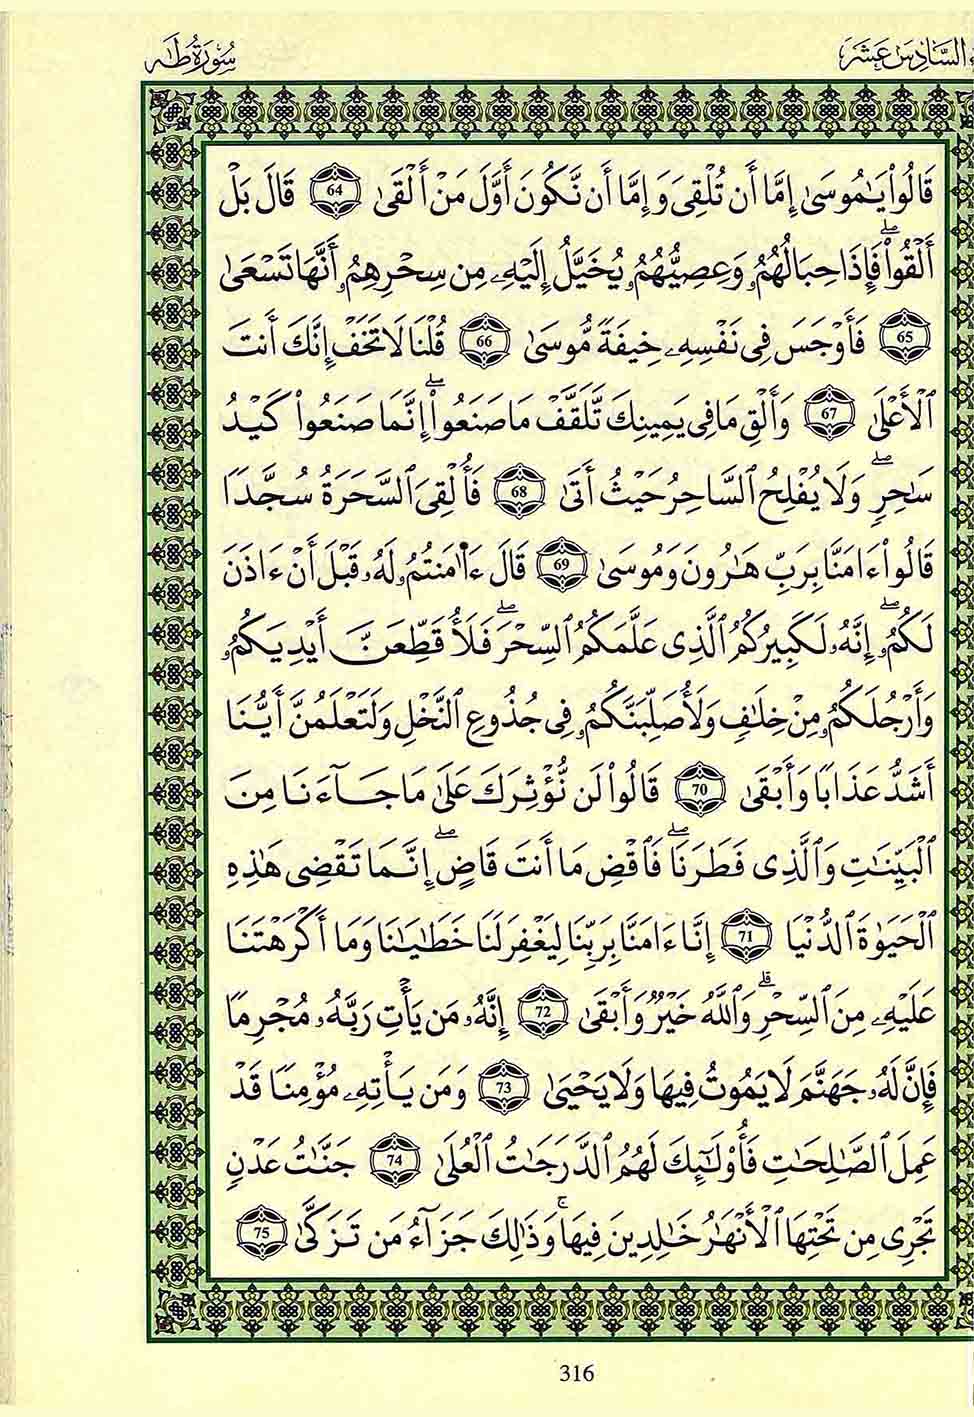 الجزء السادس عشر
سُورَةُ طَٰهٰ
قَالُواْ يَٰمُوسَىٰ إِمَّا أَن تُلْقِىَ وَإِمَّا أَن نَّكُونَ أَوَّلَ مَنْ أَلْقَىٰ 64 قَالَ بَلْ
أَلْقُواْۖ فَإِذَا حِبَالُهُمُۥ وَعِصِيُّهُمُۥ يُخَيَّلُ إِلَيْهِۦ مِن سِحْرِهِمُۥ أَنَّهَا تَسْعَىٰ
65 فَأَوْجَسَ فِى نَفْسِهِۦ خِيفَةً مُّوسَىٰ 66 قُلْنَا لَا تَخَفْ إِنَّكَ أَنتَ
ٱلْأَعْلَىٰ 67 وَأَلْقِ مَا فِى يَمِينِكَ تَّلَقَّفْ مَا صَنَعُواْۖ إِنَّمَا صَنَعُواْ كَيْدُ
سَٰحِرٍۖ وَلَا يُفْلِحُ ٱلسَّاحِرُ حَيْثُ أَتَىٰ 68 فَأُلْقِىَ ٱلسَّحَرَةُ سُجَّدًا
قَالُواْ ءَامَنَّا بِرَبِّ هَٰرُونَ وَمُوسَىٰ 69 قَالَ ءَا۬مَنتُمُۥ لَهُۥ قَبْلَ أَنْ ءَاذَنَ
لَكُمُۥۖ إِنَّهُۥ لَكَبِيرُكُمُ ٱلَّذِى عَلَّمَكُمُ ٱلسِّحْرَۖ فَلَأُقَطِّعَنَّ أَيْدِيَكُمُۥ
وَأَرْجُلَكُمُۥ مِنْ خِلَٰفٍ وَلَأُصَلِّبَنَّكُمُۥ فِى جُذُوعِ ٱلنَّخْلِ وَلَتَعْلَمُنَّ أَيُّنَا
أَشَدُّ عَذَابًا وَأَبْقَىٰ 70 قَالُواْ لَن نُّؤْثِرَكَ عَلَىٰ مَا جَآءَنَا مِنَ
ٱلْبَيِّنَٰتِ وَٱلَّذِى فَطَرَنَاۖ فَٱقْضِ مَا أَنتَ قَاضٍۖ إِنَّمَا تَقْضِى هَٰذِهِ
ٱلْحَيَوٰةَ ٱلدُّنْيَا 71 إِنَّا ءَامَنَّا بِرَبِّنَا لِيَغْفِرَ لَنَا خَطَٰيَٰنَا وَمَا أَكْرَهْتَنَا
عَلَيْهِۦ مِنَ ٱلسِّحْرِۗ وَٱللَّهُ خَيْرٌ وَأَبْقَىٰ 72 إِنَّهُۥ مَن يَأْتِ رَبَّهُۥ مُجْرِمًا
فَإِنَّ لَهُۥ جَهَنَّمَ لَا يَمُوتُ فِيهَا وَلَا يَحْيَىٰ 73 وَمَن يَأْتِهِۦ مُؤْمِنًا قَدْ
عَمِلَ ٱلصَّٰلِحَٰتِ فَأُوْلَٰٓئِكَ لَهُمُ ٱلدَّرَجَٰتُ ٱلْعُلَىٰ 74 جَنَّٰتُ عَدْنٍ
تَجْرِى مِن تَحْتِهَا ٱلْأَنْهَٰرُ خَٰلِدِينَ فِيهَاۚ وَذَٰلِكَ جَزَآءُ مَن تَزَكَّىٰ 75
316